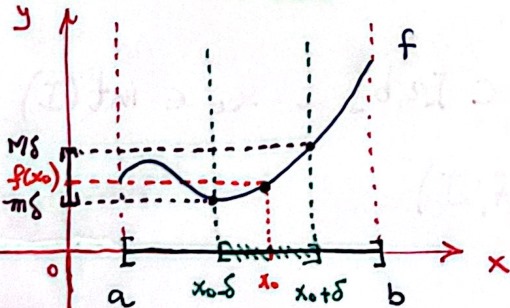 y
f
Mδ
f(x₀)
mδ
0
a
x₀-δ
x₀
x₀+δ
b
x